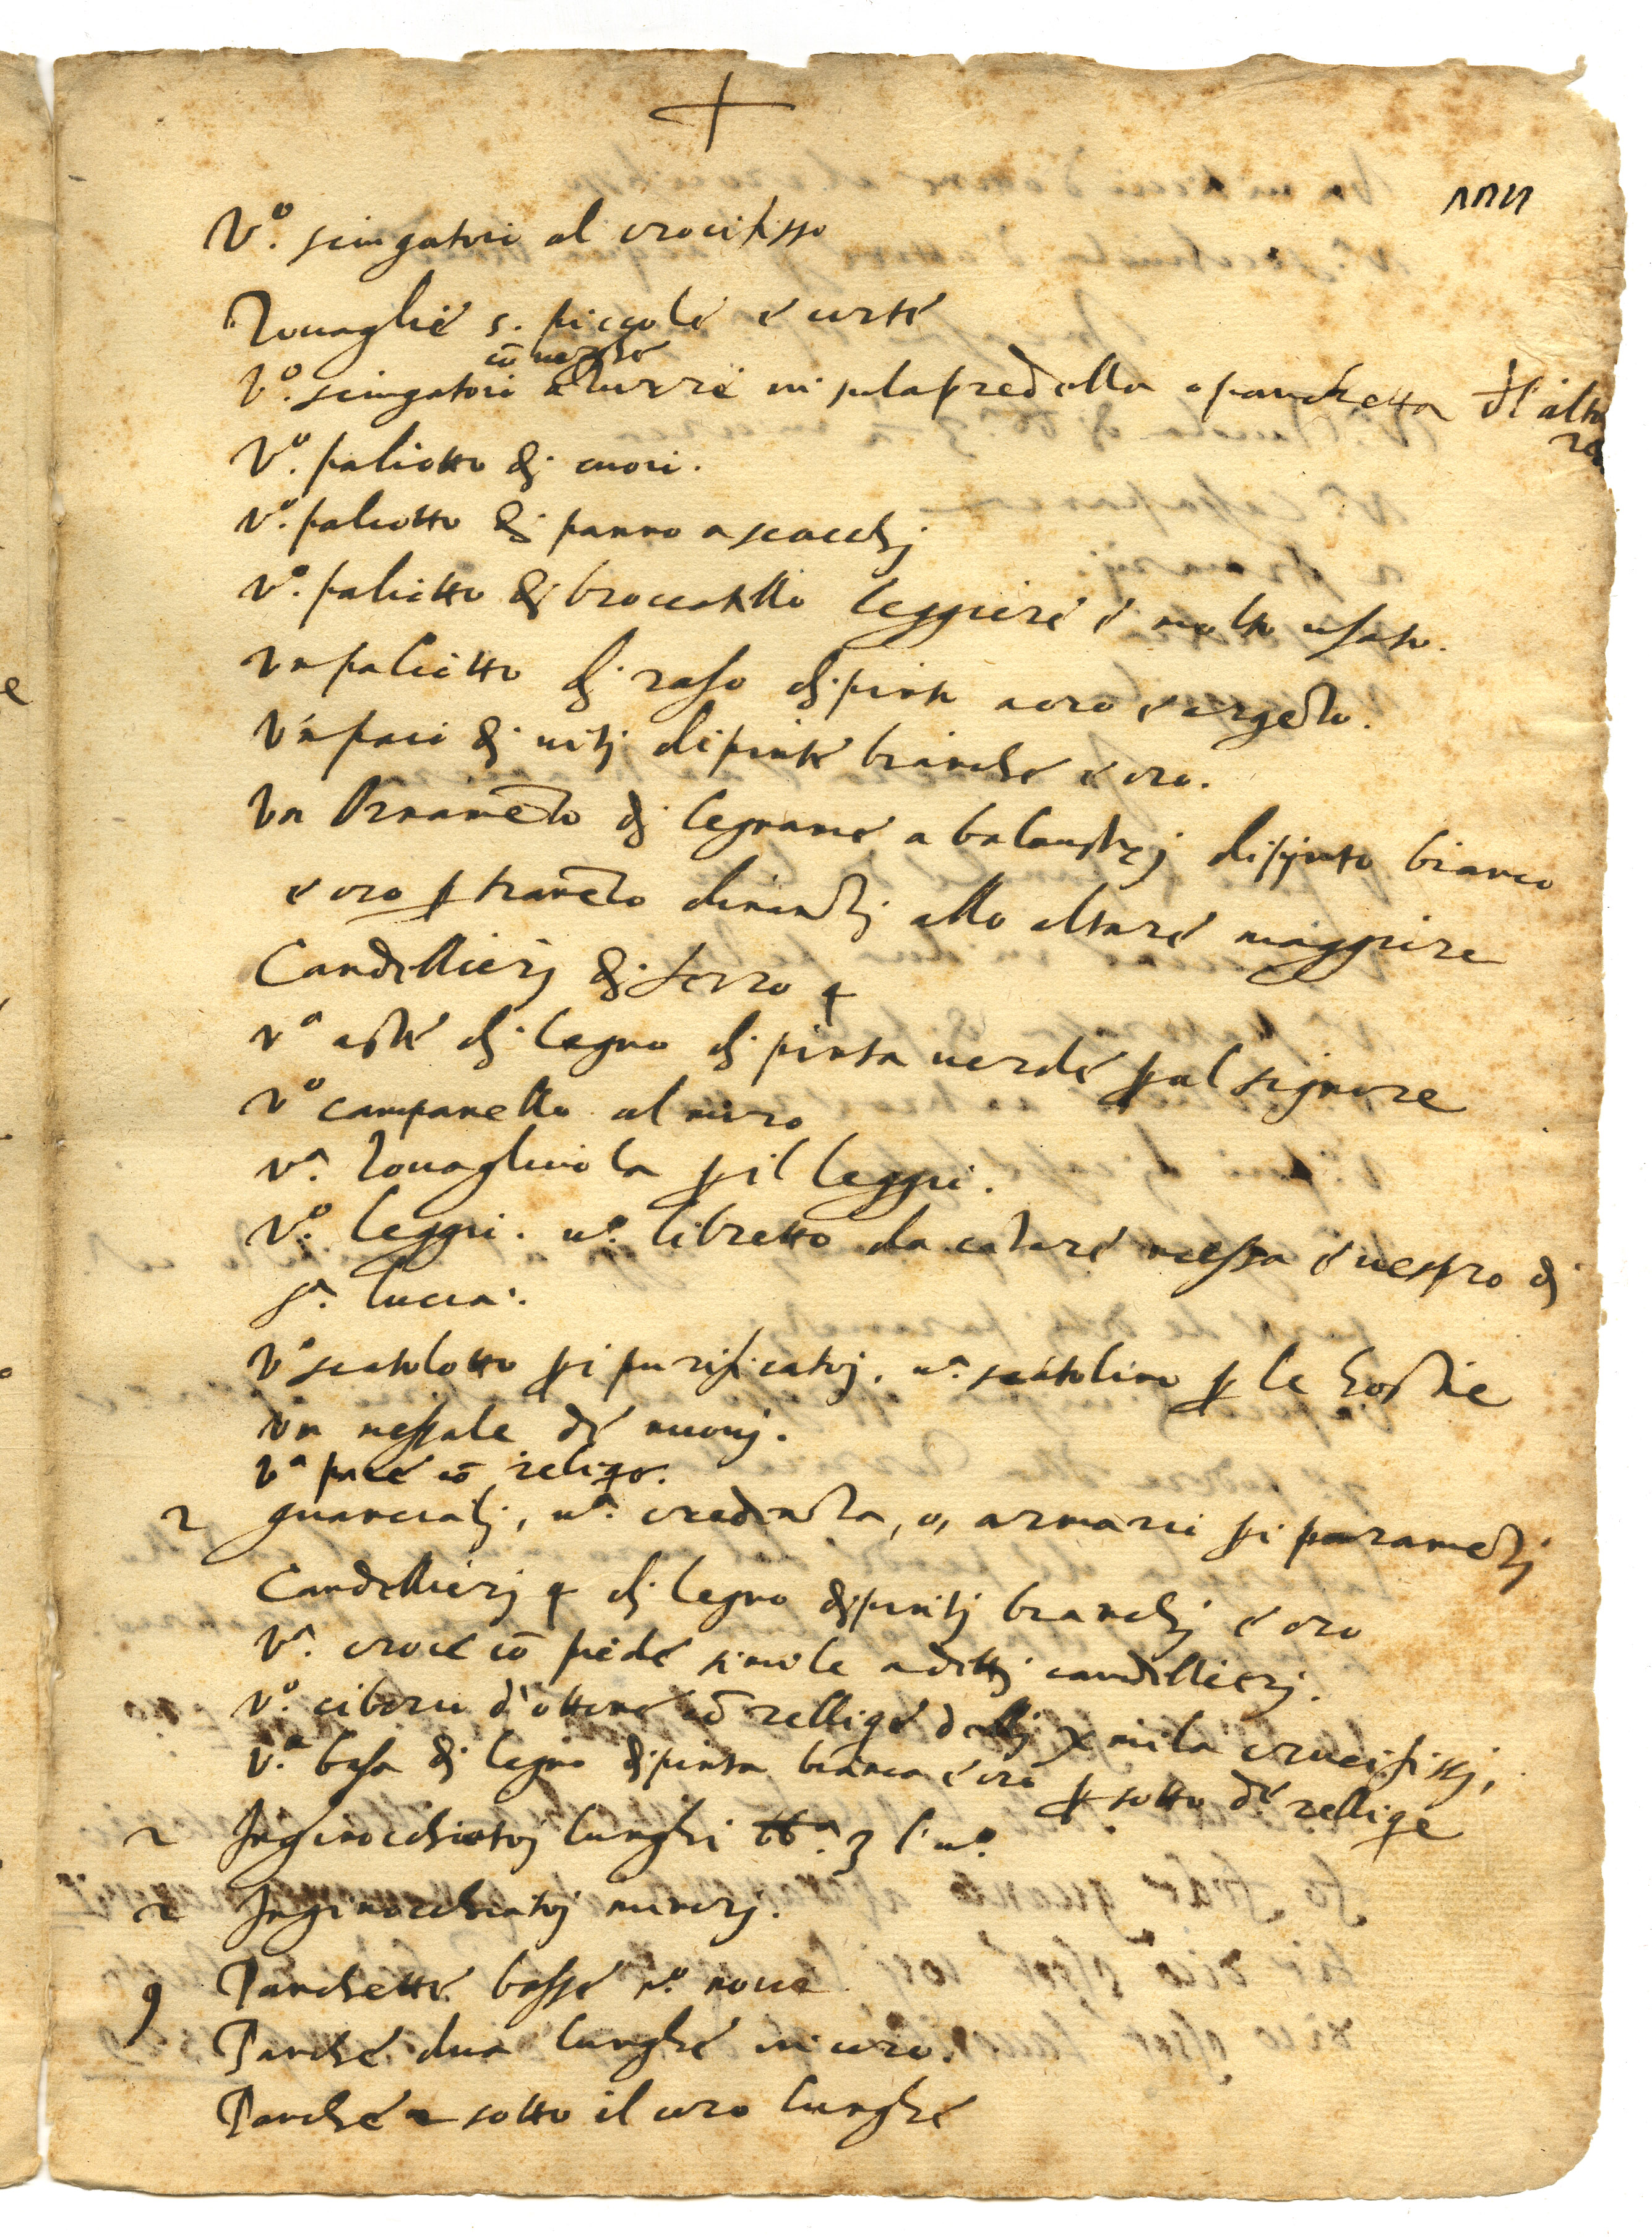 +
V.º sciugatoio al crocifisso
Tovaglie 5. piccole e corte
cō verghe
V.º sciugatoio azurre in su la predella o panchetta d'l'alta
re
V.º paliotto di cuoio.
V.º paliotto di panno a scacchj
V.º paliotto di broccatello leggiere e molto usato.
Un paliotto di raso dipinto a oro e argēto.
Un paio di vitj dipinte bianche e oro.
Un Ornamēto di legname a balaustrj dipinto bianco
e oro p tramēto dinanzj allo altare maggiore
Candellierj di ferro 4
Vª aste di legno dipinta verde p al signore
Vº campanello al muro
Vª. Tovagliuola p il leggio.
Vº. leggio. uº. libretto da cātare messa e vespro di
Sª. Lucia.
Vº scatolotto p i purificatoj. uª. scatolino p le hostie
Un messale de nuovj.
Vª pace cō reliqe.
2 guancialj, uª. credenza, o, armario p i paramētj
Candellierj 4 di legno dipintj bianchj e oro
Vª. croce cō piede simile a dettj candellierj.
Vº. ciborio d'ottone cō rellique dellj X mila crucifissj,
Vª. basa di legno dipinta bianca e oro p sotto de rellique
2 Inginocchiatoj lunghi bbª. 3 l'uº.
2 Inginocchiatoj minorj.
9 Panchette basse nº. nove
Panche dua lunghe in coro.
Panche 2 sotto il coro lunghe